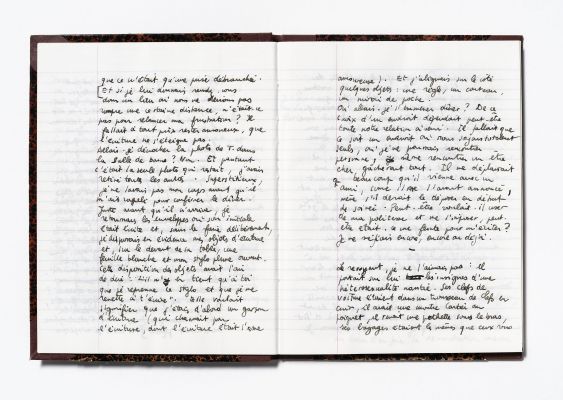 que ce n'était qu'une prise débranchée.
Et si je lui donnais rendez-vous
dans un lieu où nous ne devions pas
rompre une certaine distance, n'était-ce
pas pour relancer ma frustration ? Il
fallait à tout prix rester amoureux, que
l'écriture ne s'éteigne pas.
Allais-je décrocher la photo de T. dans
la salle de bains ? Non. Et pourtant
c'était la seule photo qui restait, j'avais
retiré toutes les autres. Superstitieux,
je ne lavais pas mon corps avant qu'il
m'ait rappelé pour confirmer le dîner.
Juste avant qu'il n'arrive, je
les enveloppes où son initiale
était écrite et, sans le faire délibérément,
je disposais en évidence mes objets d'écriture
et, sur le devant de la table, une
feuille blanche et mon stylo plume ouvert.
Cette disposition des objets avait l'air
de dire : il n'en tient qu'à toi
que je reprenne le stylo et que je me
remette à t'écrire". Elle voulait
signifier que j'étais d'abord un garçon
d'écriture, qui charmait par
l'écriture, dont l'écriture était l'arme
amoureuse). Et j'alignais sur le côté
quelques objets : une règle, un couteau,
un miroir de poche.
Où allais-je l'emmener dîner ? De ce
choix d'un endroit dépendait peut-être
toute notre relation à venir. Il fallait que
ce soit un endroit où nous soyons totalement
seuls, où je ne pourrais rencontrer
personne, même rencontrer un être
cher gâcherait tout. Il me déplaisait
beaucoup qu'il vienne avec un
ami, comme il me l'avait annoncé,
même s'il devait le déposer en début
de soirée. Peut-être voulait-il user
de ma politesse et me s'esquiver, peut-
être était-ce une feinte pour m'exciter ?
Je me méfiais encore, encore au déjà.
—
Le revoyant, je ne l'aimais pas : il
portait sur lui les insignes d'une
hétérosexualité navrée. Ses clefs de
voiture étaient dans un trousseau de clefs en
cuir, il avait une montre Cartier au
poignet, il serrait une pochette sous le bras,
ses bagages étaient les mêmes que ceux vus